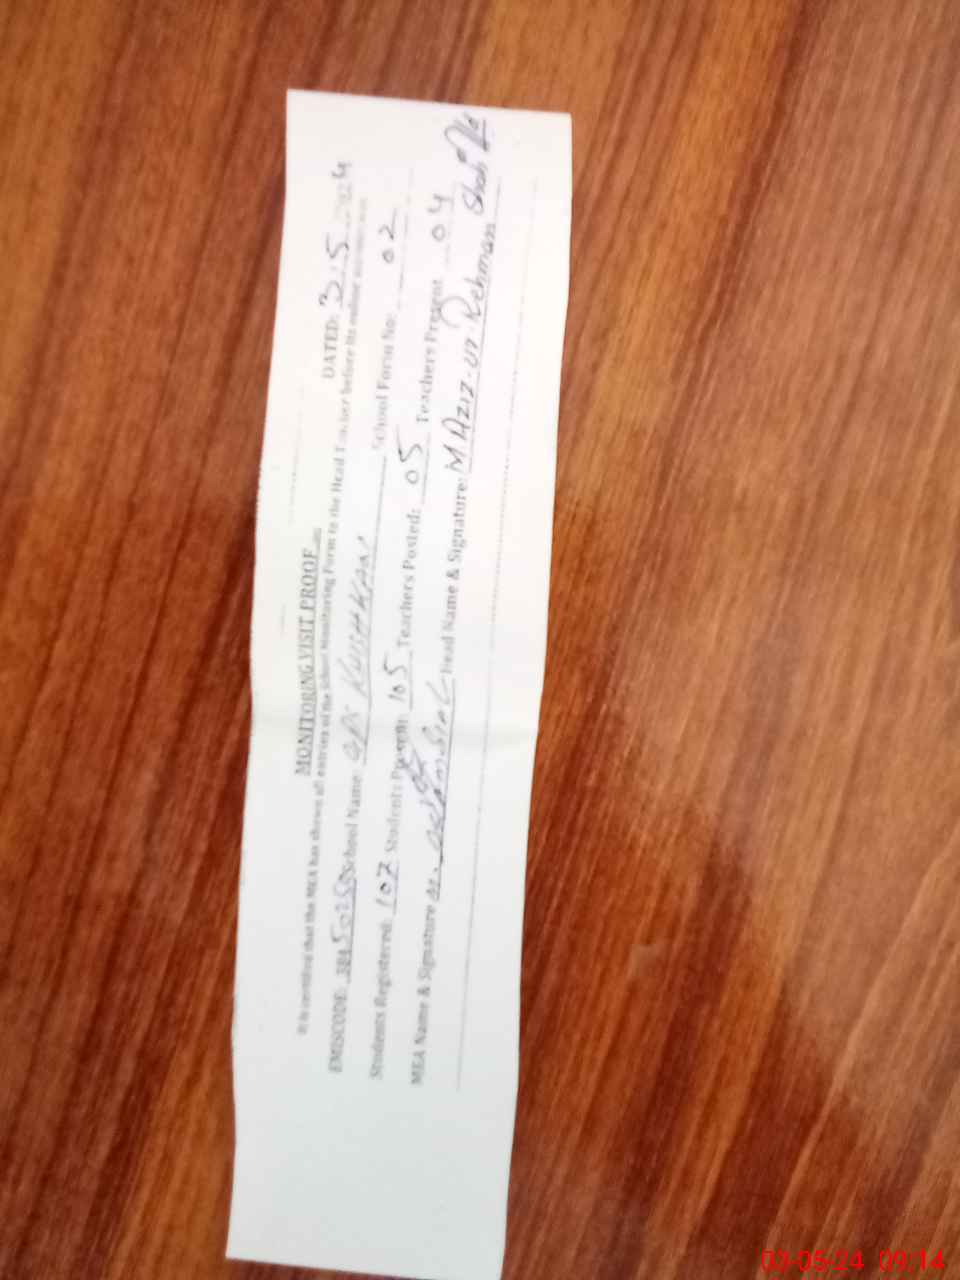 MONITORING VISIT PROOF DATED: 3.5.2024
It is certified that the MEA has shown all entries of the School Monitoring Form to the Head Teacher before its online
EMISCODE: 38450250 School Name: GPS School Form No: 02
Students Registered: 107 Students Present: 105 Teachers Posted: 05 Teachers Present 04
MEA Name & Signature Head Name & Signature: M Aziz-ur-Rehman Shah
03-05-24 09:14